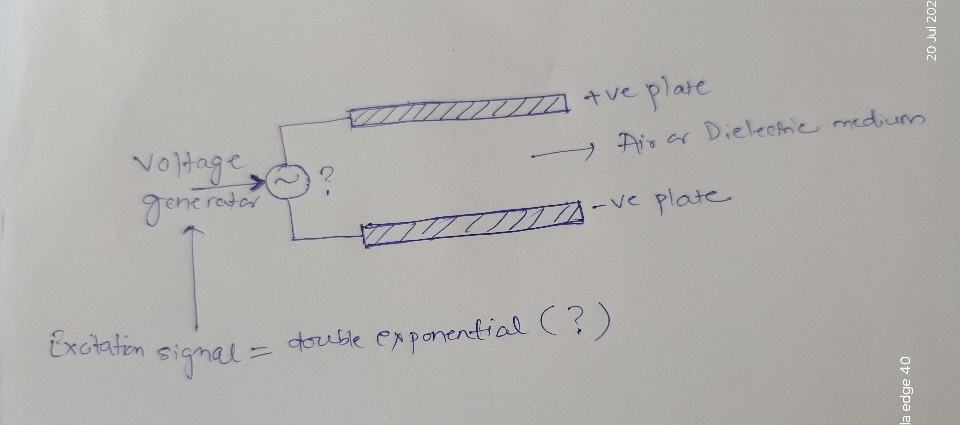 +ve plate
→ Air or Dielectric medium
Voltage
generator
~ ?
-ve plate
Excitation signal = double exponential (?)
20 Jul 202
la edge 40